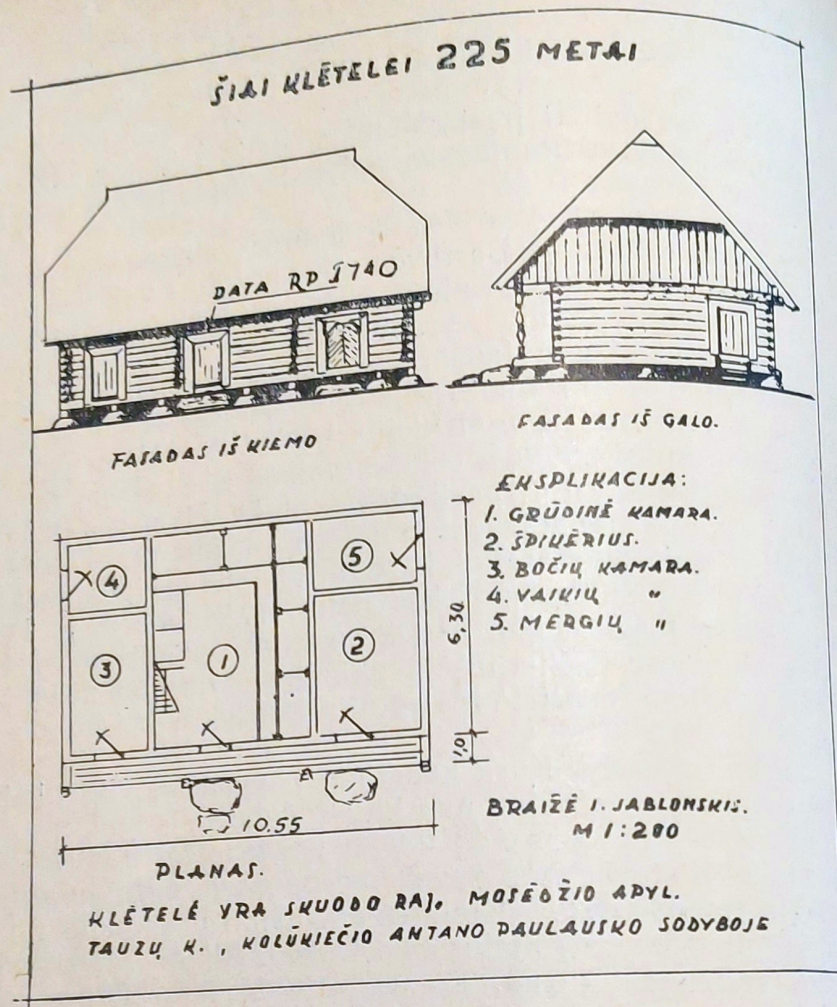 ŠIAI KLĖTELEI 225 METAI
DATA RD 1740
FASADAS IŠ KIEMO
FASADAS IŠ GALO.
EKSPLIKACIJA:
1. GRŪDINĖ KAMARA.
2. ŠPIKĖRIUS.
3. BOČIŲ KAMARA.
4. VAIKIŲ "
5. MERGIŲ "
4
5
3
1
2
6,30
1,0
10.55
PLANAS.
BRAIŽĖ I. JABLONSKIS.
M 1:200
KLĖTELĖ YRA SKUODO RAJ. MOSĖDŽIO APYL.
TAUZŲ K., KOLŪKIEČIO ANTANO PAULAUSKO SODYBOJE